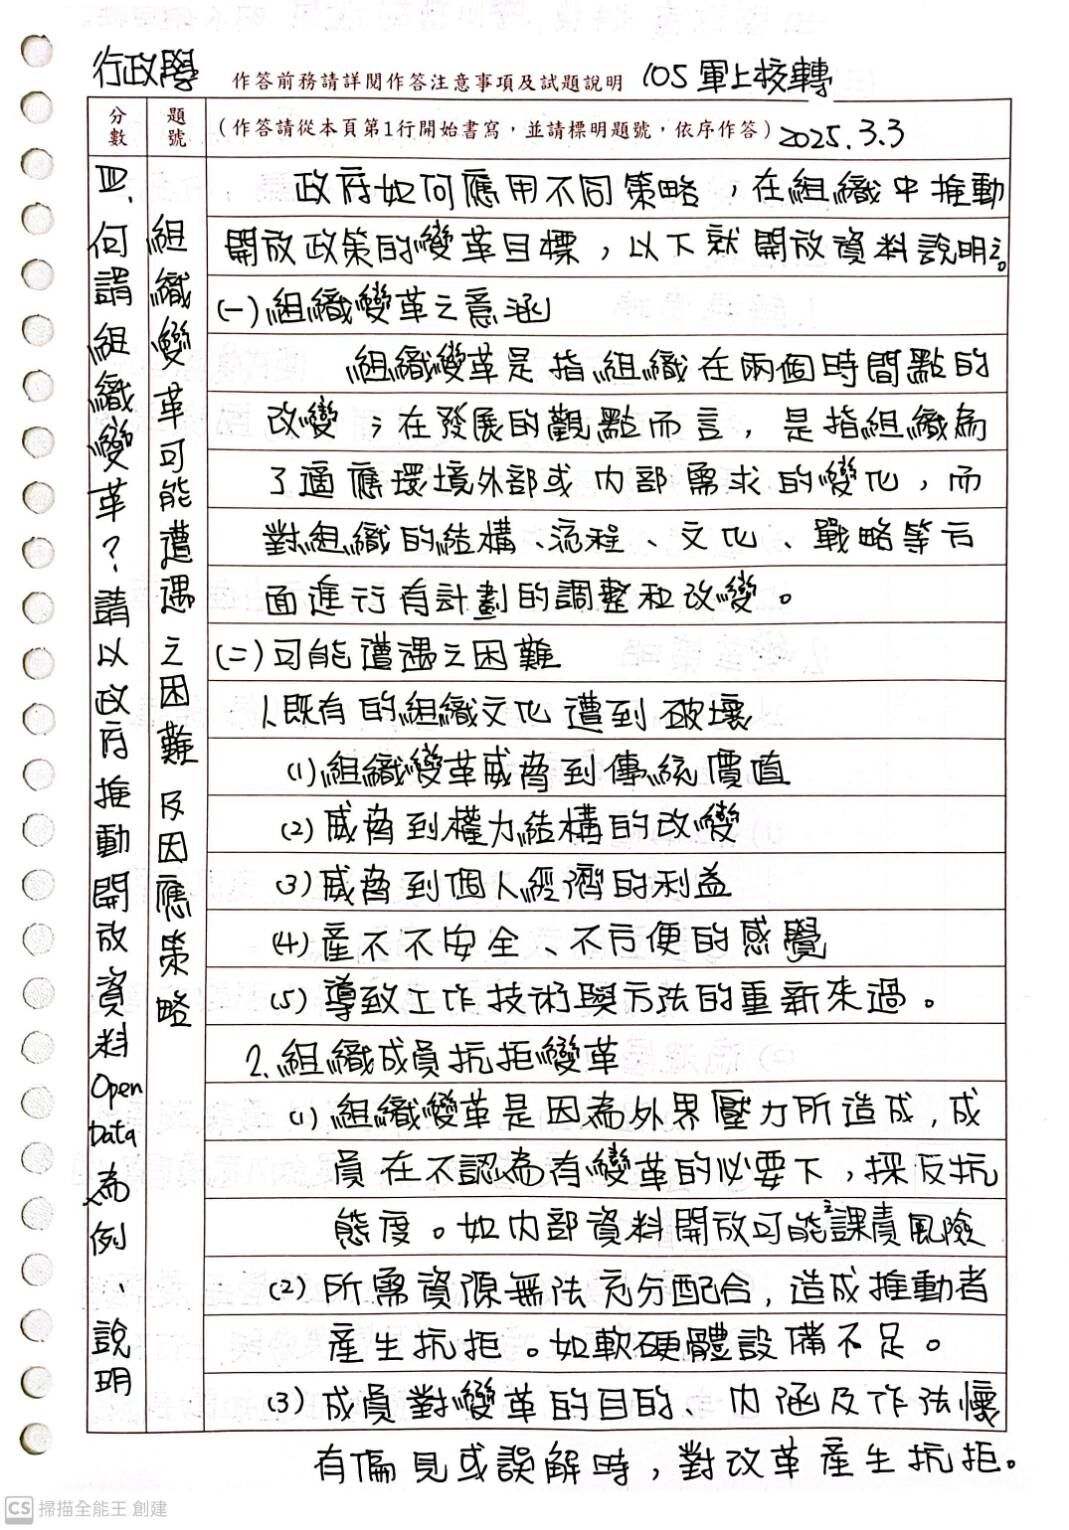 行政學
作答前務請詳閱作答注意事項及試題說明
105軍上校轉
分數
題號
(作答請從本頁第1行開始書寫,並請標明題號,依序作答)
2025.3.3
四、何謂組織變革?請以政府推動開放資料Open Data為例、說明
組織變革可能遭遇之困難及因應策略
政府如何應用不同策略,在組織中推動
開放政策的變革目標,以下就開放資料說明之。
(一)組織變革之意涵
組織變革是指組織在兩個時間點的
改變;在發展的觀點而言,是指組織為
了適應環境外部或內部需求的變化,而
對組織的結構、流程、文化、戰略等方
面進行有計劃的調整和改變。
(二)可能遭遇之困難
1.既有的組織文化遭到破壞
(1)組織變革威脅到傳統價值
(2)威脅到權力結構的改變
(3)威脅到個人經濟的利益
(4)產不不安全、不方便的感覺
(5)導致工作技術與方法的重新來過。
2.組織成員抗拒變革
(1)組織變革是因為外界壓力所造成,成
員在不認為有變革的必要下,採反抗
態度。如內部資料開放可能之課責風險
(2)所需資源無法充分配合,造成推動者
產生抗拒。如軟硬體設備不足。
(3)成員對變革的目的、內涵及作法懷
有偏見或誤解時,對改革產生抗拒。
CS 掃描全能王 創建